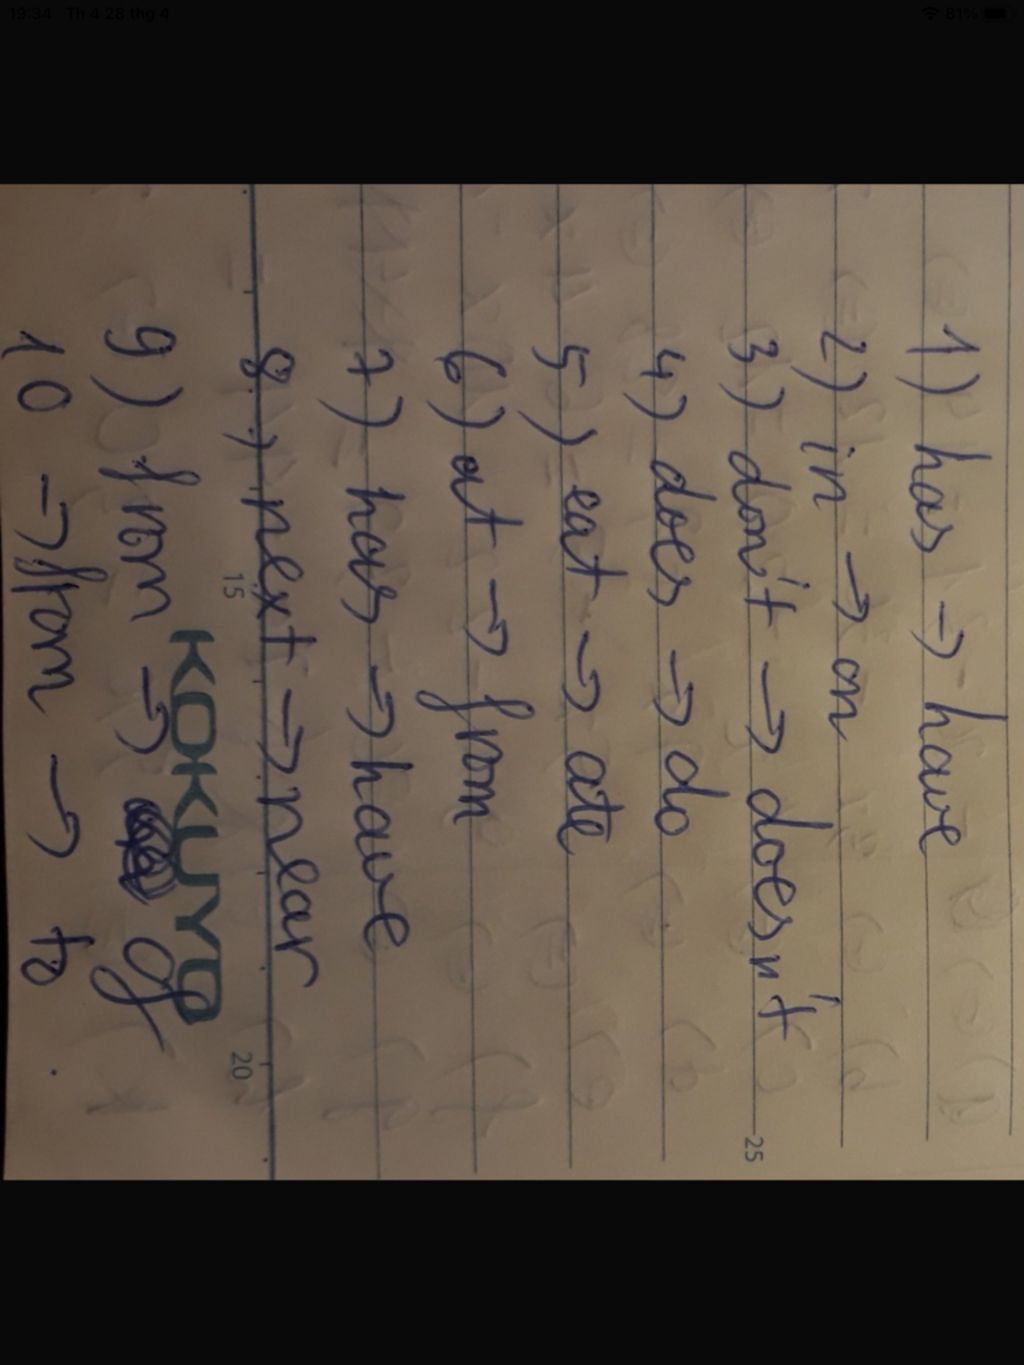 19:34 Th 4 28 thg 4
81%
1) has → have
2) in → on
3) don't → doesn't
4) does → do
5) eat → ate
6) at → from
7) has → have
8) next → near
9) from → of
10 → from → to.
25
15
20
KOKUYO